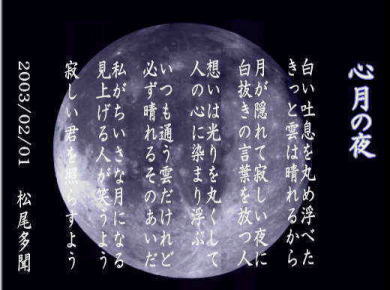 心月の夜
白い吐息を丸め浮べた
きっと雲は晴れるから
月が隠れて寂しい夜に
白抜きの言葉を放つ人
想いは光りを丸くして
人の心に染まり浮ぶ
いつも通う雲だけれど
必ず晴れるそのあいだ
私がちいさな月になる
見上げる人が笑うよう
寂しい君を照らすよう
2003/02/01 松尾多聞